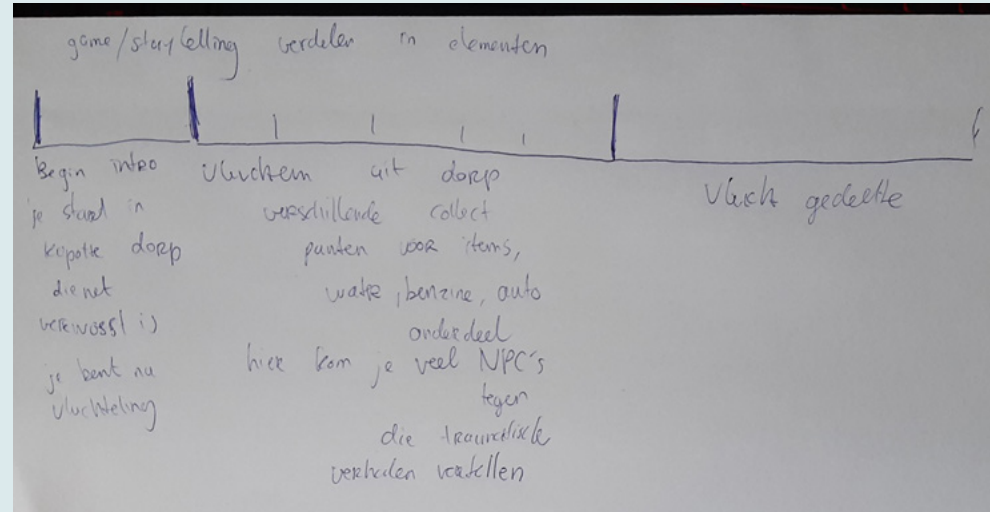 game/storytelling verdelen in elementen
Begin intro
je stand in
kapotte dorp
die net
verewosst is
je bent nu
vluchteling
vluchten uit dorp
verschillende collect
punten voor items,
water, benzine, auto
onderdeel
hier kom je veel NPC's
tegen
die traumatische
verhalen vertellen
Vlucht gedeelte